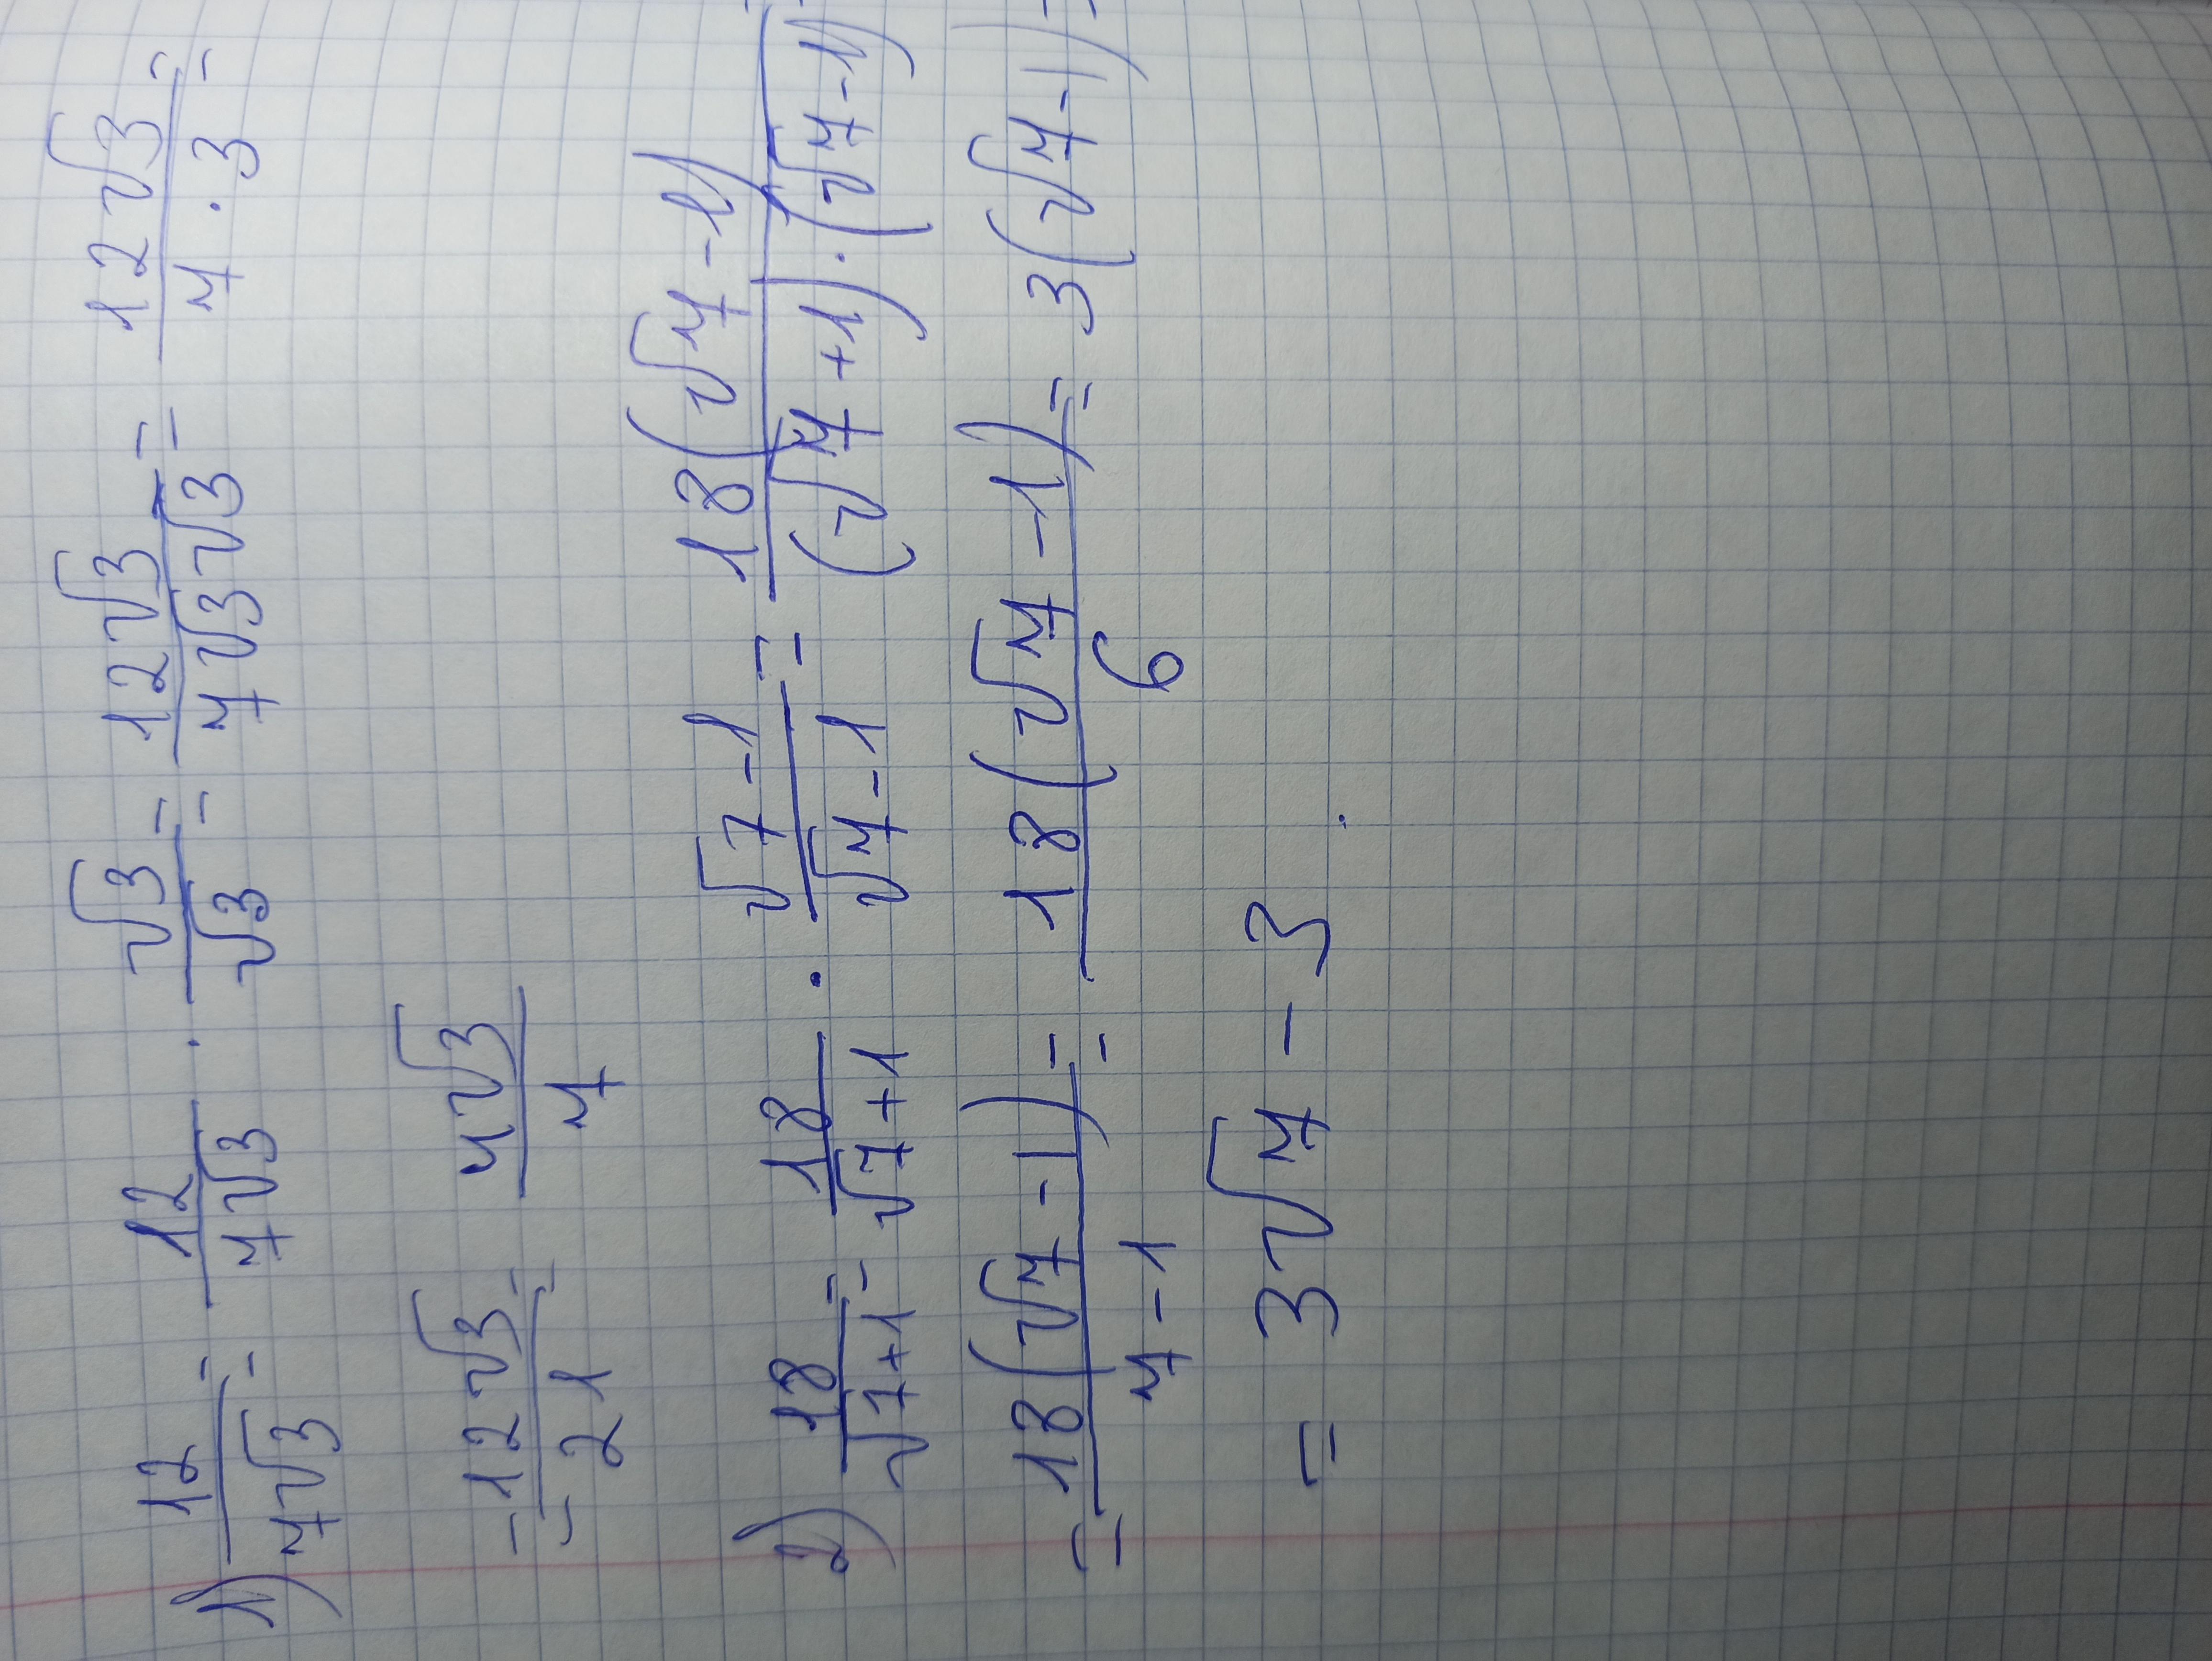 1) 12/7√3 = 12/7√3 · √3/√3 = 12√3/7√3√3 = 12√3/7·3 =
= 12√3/21 = 4√3/7
2) 18/√7+1 = 18/√7+1 · √7-1/√7-1 = 18(√7-1)/(√7+1)·(√7-1) =
= 18(√7-1)/7-1 = 18(√7-1)/6 = 3(√7-1) =
= 3√7-3.